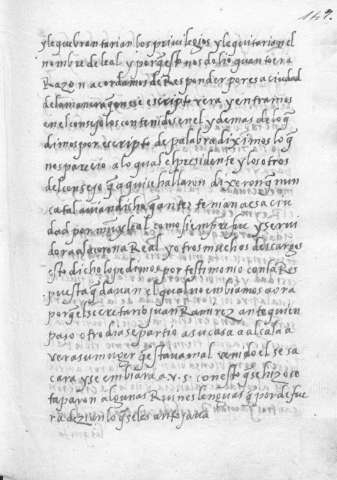 147.
y le quebrantarian los privilegios y le quitarian el
nombre de leal y porq̃ esto nos dolio quanto era
Razon acordamos de Responder por esa ciudad
de la manera q̃ en ese escripto vera y entramos
en el consejo los contenidos en el y demas de lo q̃
dimos por escripto de palabra diximos lo q̃
nos parecio a lo qual el presidente y los otros
del consejo q̃ aqui se hallaron dixeron q̃ nun
ca tal avian dicho q̃ antes teman a esa ciu
dad por muy leal como siempre fue y servi
dora a la corona Real y otros muchos descargos
esto dicho lo pedimos por testimonio con la Res
puesta q̃ davan el qual no embiamos agora
porq̃ el secretario juan Ramirez ante quien
paso otro dia se partio a su casa a alcala a
ver a su muger q̃ estava mal venido el se sa
cara y se embiara a v. s. con esto q̃ se hizo se
taparon algunas Ruines lenguas q̃ por de fue
ra dezian lo q̃ se les antojava